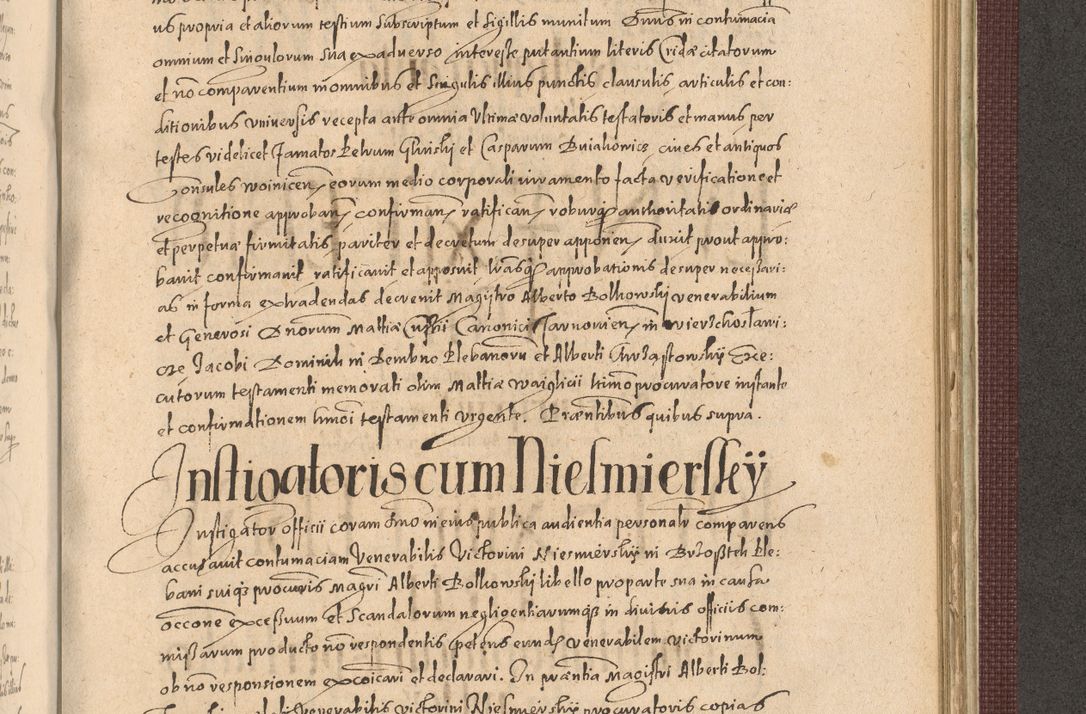 us propria et aliorum testium subscriptum et sigillis munitum Dnus in contumacia
omnium et singulorum sua ex adverso interesse putantium literis Cridæ citatorum
et nō comparentium in omnibus et singulis illius punctis clausulis articulis et con:
ditionibus universis recepta ante omnia ultimæ voluntatis testatoris et manus per
testes videlicet famatos Petrum et Casparum cives et antiquos
Consules woinicen eorum medio corporali iuramento facta verificatione et
recognitione approban confirman ratifican roburq authoritatis ordinariæ
et perpetuæ firmitatis pariter et decretum desuper apponen duxit prout appro:
bavit confirmavit ratificavit et apposuit lrasq approbationis desuper necessari:
as in forma extradendas decrevit Magistro Alberto Bolkowskÿ venerabilium
et Generosi Dnorum Mattiæ Canonici Tarnovien in wierzchoslawi:
cze Jacobi Dominik in Dembno Plebanorū et Alberti Exe:
cutorum testamenti memorati olim Mattiæ ltimo procuratore instante
et confirmationem hmōi testamenti urgente. Præntibus quibus supra.
Instigatoris cum Niesmierskÿ
Instigator officii coram dno in eius publica audientia personalr comparens
accusavit contumaciam Venerabilis Victorini Niesmierskÿ in Brzosztek Ple:
bani suiq procuris Magri Alberti Bolkowskÿ libello pro parte sua in causa
occone excessuum et scandalorum negligentiarumq in divinis officiis com:
missarum producto nō respondentis petens eund venerabilem Victorinum
ob nō responsionem excoicari et declarari. In præntia Magistri Alberti Bol:
venerabilis Victorini Niesmierskÿ procuratoris copias